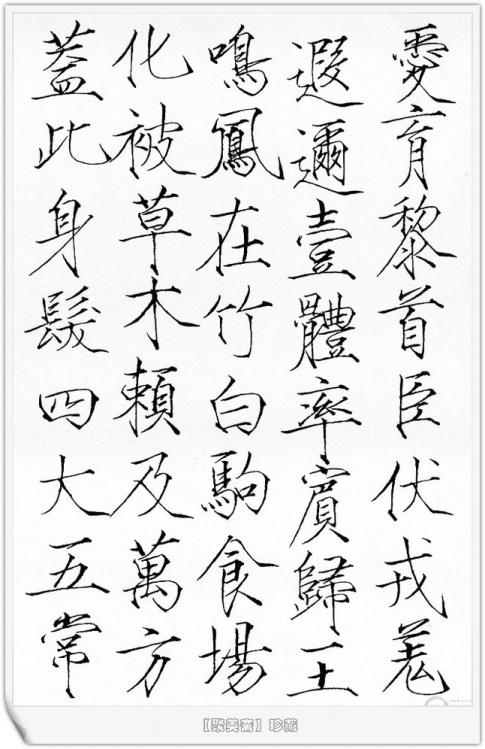 愛育黎首臣伏戎羌
遐邇壹體率賓歸王
鳴鳳在竹白駒食場
化被草木賴及萬方
蓋此身髮四大五常
【聚美斋】珍藏